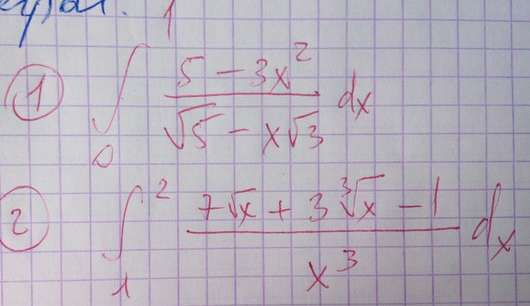 1
① ∫₀ (5 - 3x²)/(√5 - x√3) dx
② ∫₁² (7√x + 3∛x - 1)/x³ dx